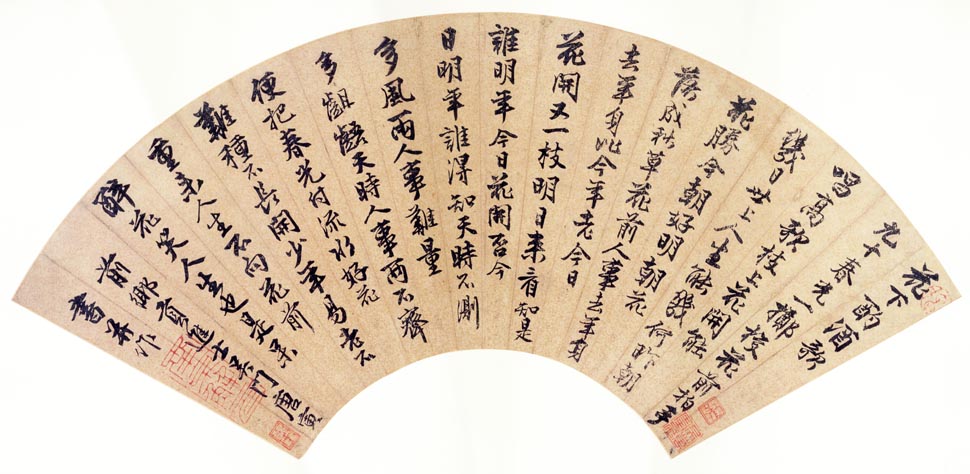 花下酌酒歌
九十春光一擲梭花前拍手
唱高歌枝上花開能
幾日世上人生能幾何昨朝
花勝今朝好明朝花
落成秋草花前人是去年身
去年身比今年老今日
花開又一枝明日來看知是
誰明年今日花開否今
日明年誰得知天時不測
多風雨人事難量
多齟齬天時人事兩不齊
便把春光付流水好花
難種不長開少年易老不
重來人生不向花前
醉花笑人生也是呆
前鄉貢進士吳門唐寅
書并作